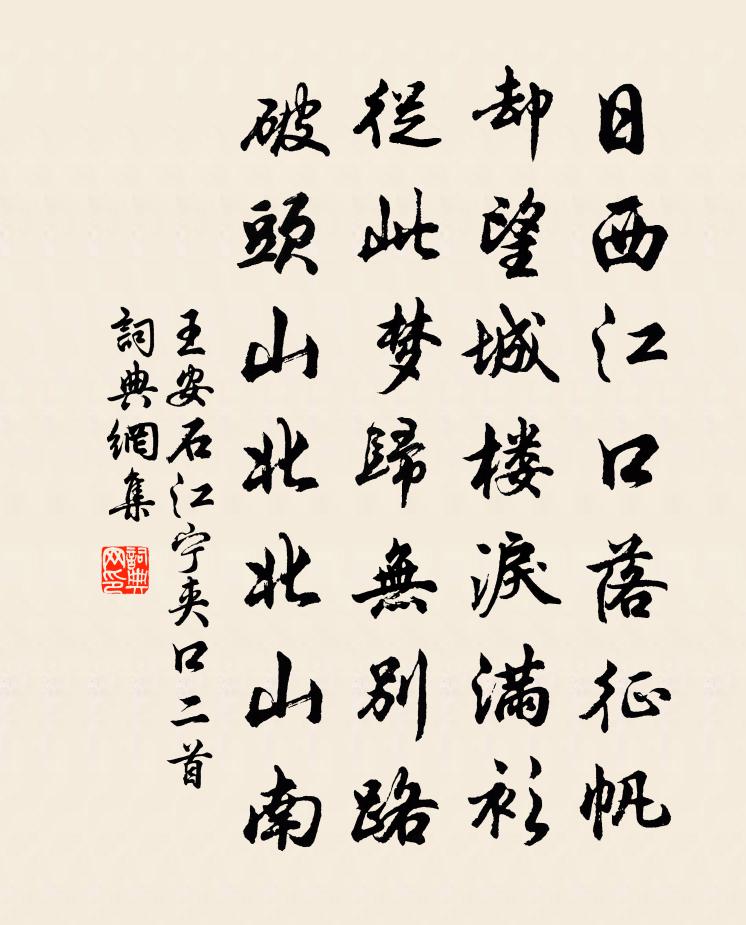 日西江口落征帆
却望城楼淚滿衫
從此梦歸無別路
破頭山北北山南
王安石江宁夹口二首
詞典網集
詞典网印